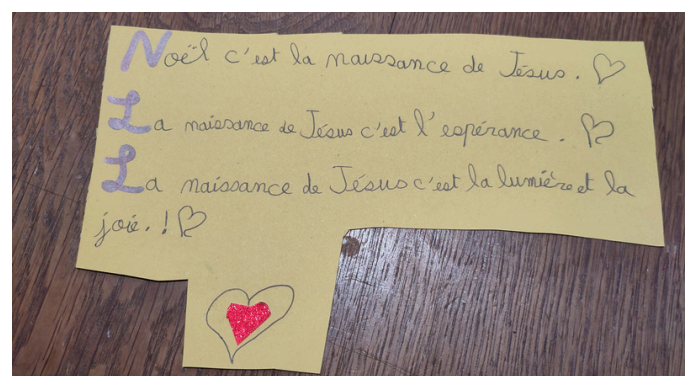 Noël c'est la naissance de Jésus. ♡
La naissance de Jésus c'est l'espérance. ♡
La naissance de Jésus c'est la lumière et la
joie. ! ♡